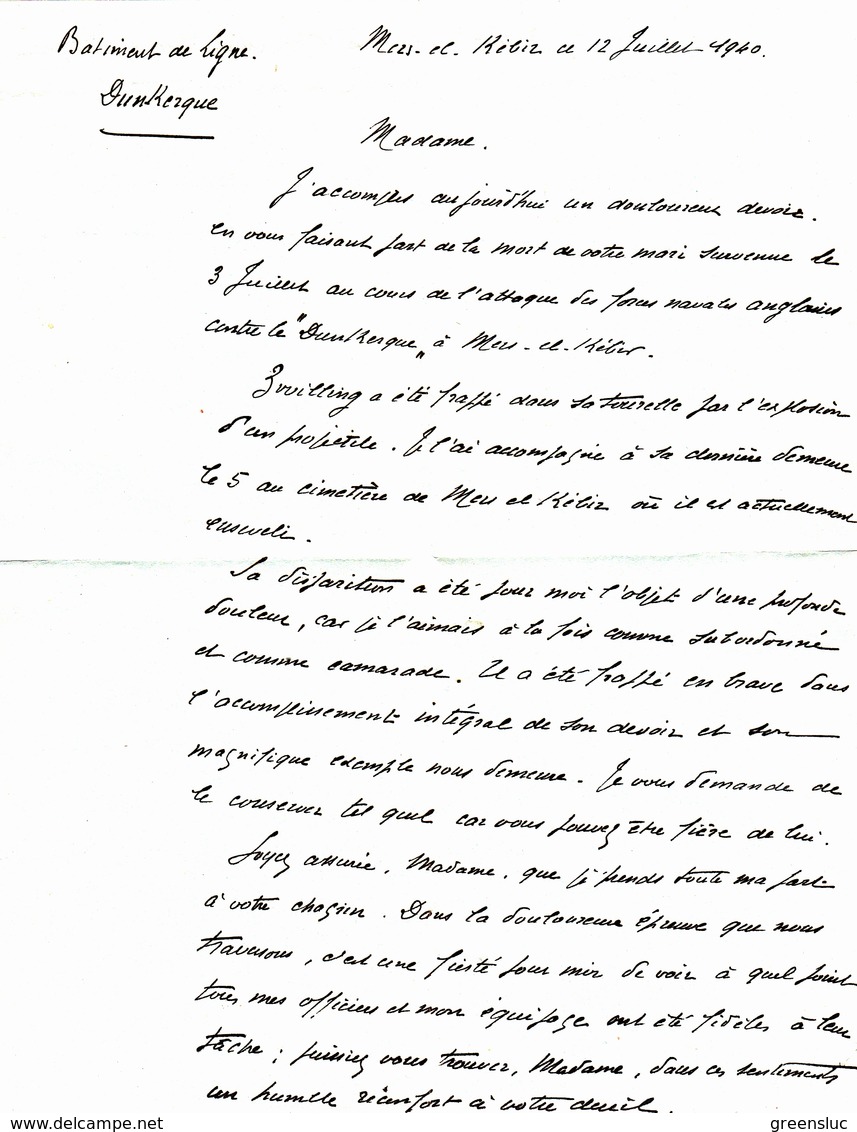 Batiment de ligne.
Dunkerque
Mers-el-Kébir ce 12 Juillet 1940.
Madame.
J'accomplis aujourd'hui un douloureux devoir.
en vous faisant part de la mort de votre mari survenue le
3 Juillet au cours de l'attaque des forces navales anglaises
contre le "Dunkerque" à Mers-el-Kébir.
Zwilling a été frappé dans sa tourelle par l'explosion
d'un projectile. Je l'ai accompagné à sa dernière demeure
le 5 au cimetière de Mers el Kébir où il est actuellement
enseveli.
Sa disparition a été pour moi l'objet d'une profonde
douleur, car je l'aimais à la fois comme subordonné
et comme camarade. Il a été frappé en brave dans
l'accomplissement intégral de son devoir et son
magnifique exemple nous demeure. Je vous demande de
le conserver tel quel car vous pouvez être fière de lui.
Soyez assurée, Madame, que je prends toute ma part
à votre chagrin. Dans la douloureuse épreuve que nous
traversons, c'est une fierté pour moi de voir à quel point
tous mes officiers et mon équipage ont été fidèles à leur
tâche; puissiez vous trouver, Madame, dans ces sentiments
un humble réconfort à votre deuil.
https://www.delcampe.net
greensluc